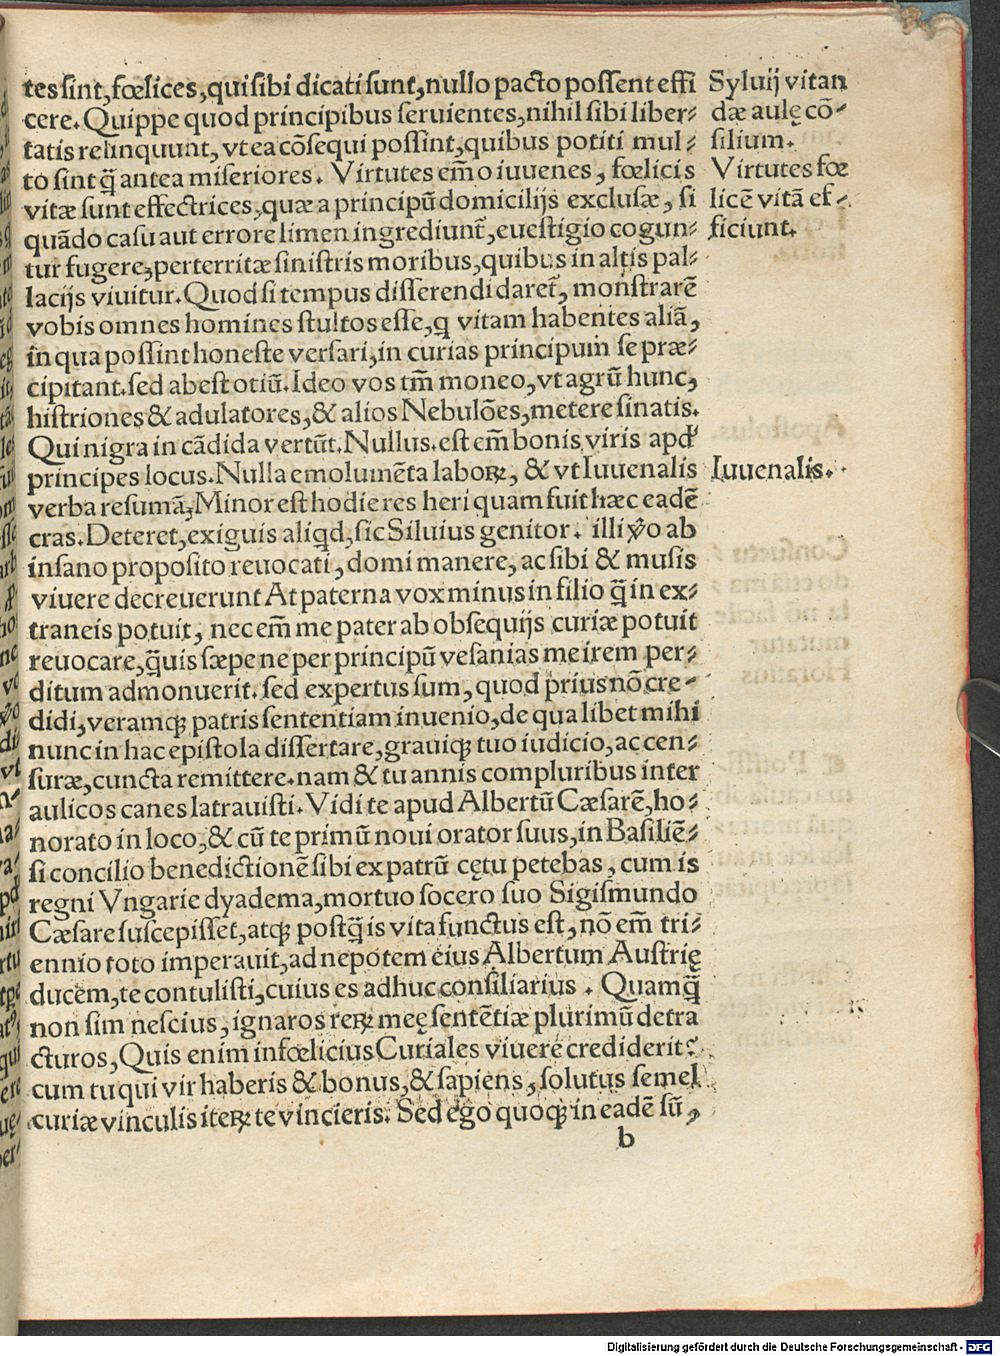 tes sint, fœlices, qui sibi dicati sunt, nullo pacto possent effi
cere. Quippe quod principibus seruientes, nihil sibi liber⸗
tatis relinquunt, vt ea cōsequi possint, quibus potiti mul⸗
to sint q̄ antea miseriores. Virtutes em̄ o iuuenes, fœlicis
vitæ sunt effectrices, quæ a principū domicilijs exclusæ, si
quādo casu aut errore limen ingrediunt̄, euestigio cogun⸗
tur fugere, perterritæ sinistris moribus, quibus in altis pal⸗
lacijs viuitur. Quod si tempus disserendi daret̄, monstrarē
vobis omnes homines stultos esse, q vitam habentes aliā,
in qua possint honeste versari, in curias principum se præ⸗
cipitant. sed abest otiū. Ideo vos tm̄ moneo, vt agrū hunc,
histriones & adulatores, & alios Nebulōes, metere sinatis.
Qui nigra in cādida vertūt. Nullus. est em̄ bonis viris apd'
principes locus. Nulla emolumēta laboꝝ, & vt Iuuenalis
verba resumā, Minor est hodie res heri quam fuit hæc eadē
cras. Deteret, exiguis aliqd, sic Siluius genitor. illi ṽo ab
insano proposito reuocati, domi manere, ac sibi & musis
viuere decreuerunt At paterna vox minus in filio q̄ in ex⸗
traneis potuit, nec em̄ me pater ab obsequijs curiæ potuit
reuocare, q̄uis sæpe ne per principū vesanias me irem per⸗
ditum admonuerit. sed expertus sum, quod prius nō cre⸗
didi, veramqꝫ patris sententiam inuenio, de qua libet mihi
nunc in hac epistola dissertare, grauiqꝫ tuo iudicio, ac cen⸗
suræ, cuncta remittere. nam & tu annis compluribus inter
aulicos canes latrauisti. Vidi te apud Albertū Cæsarē, ho⸗
norato in loco, & cū te primū noui orator suus, in Basiliē⸗
si concilio benedictionē sibi ex patrū cętu petebas, cum is
regni Vngarie dyadema, mortuo socero suo Sigismundo
Cæsare suscepisset, atqꝫ postq̄ is vita functus est, nō em̄ tri⸗
ennio toto imperauit, ad nepotem eius Albertum Austrię
ducem, te contulisti, cuius es adhuc consiliarius. Quamq̄
non sim nescius, ignaros reꝝ meę sentētiæ plurimū detra
cturos, Quis enim infœlicius Curiales viuere crediderit?
cum tu qui vir haberis & bonus, & sapiens, solutus semel
curiæ vinculis iteꝝ te vincieris. Sed ego quoqꝫ in eadē sū,
b
Syluij vitan
dæ aulę cō⸗
silium.
Virtutes fœ
licē vitā ef⸗
ficiunt.
Iuuenalis.
Digitalisierung gefördert durch die Deutsche Forschungsgemeinschaft - DFG